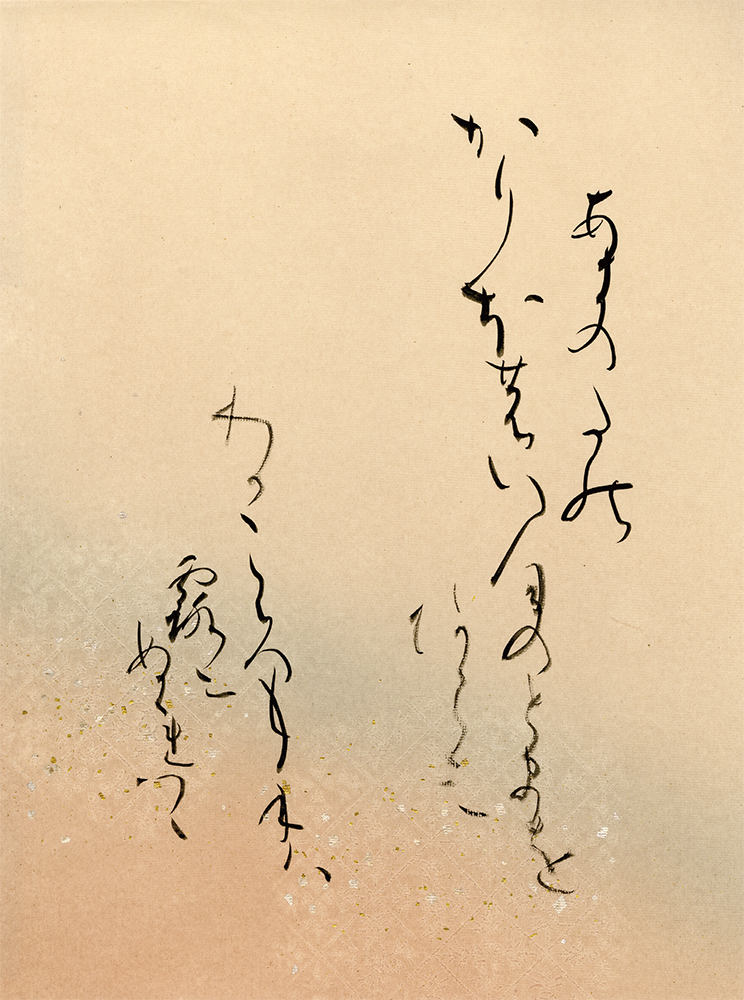 あきのたの
かりおのいほのとまを
あらみ
わかころも手は
露に
ぬれつゝ